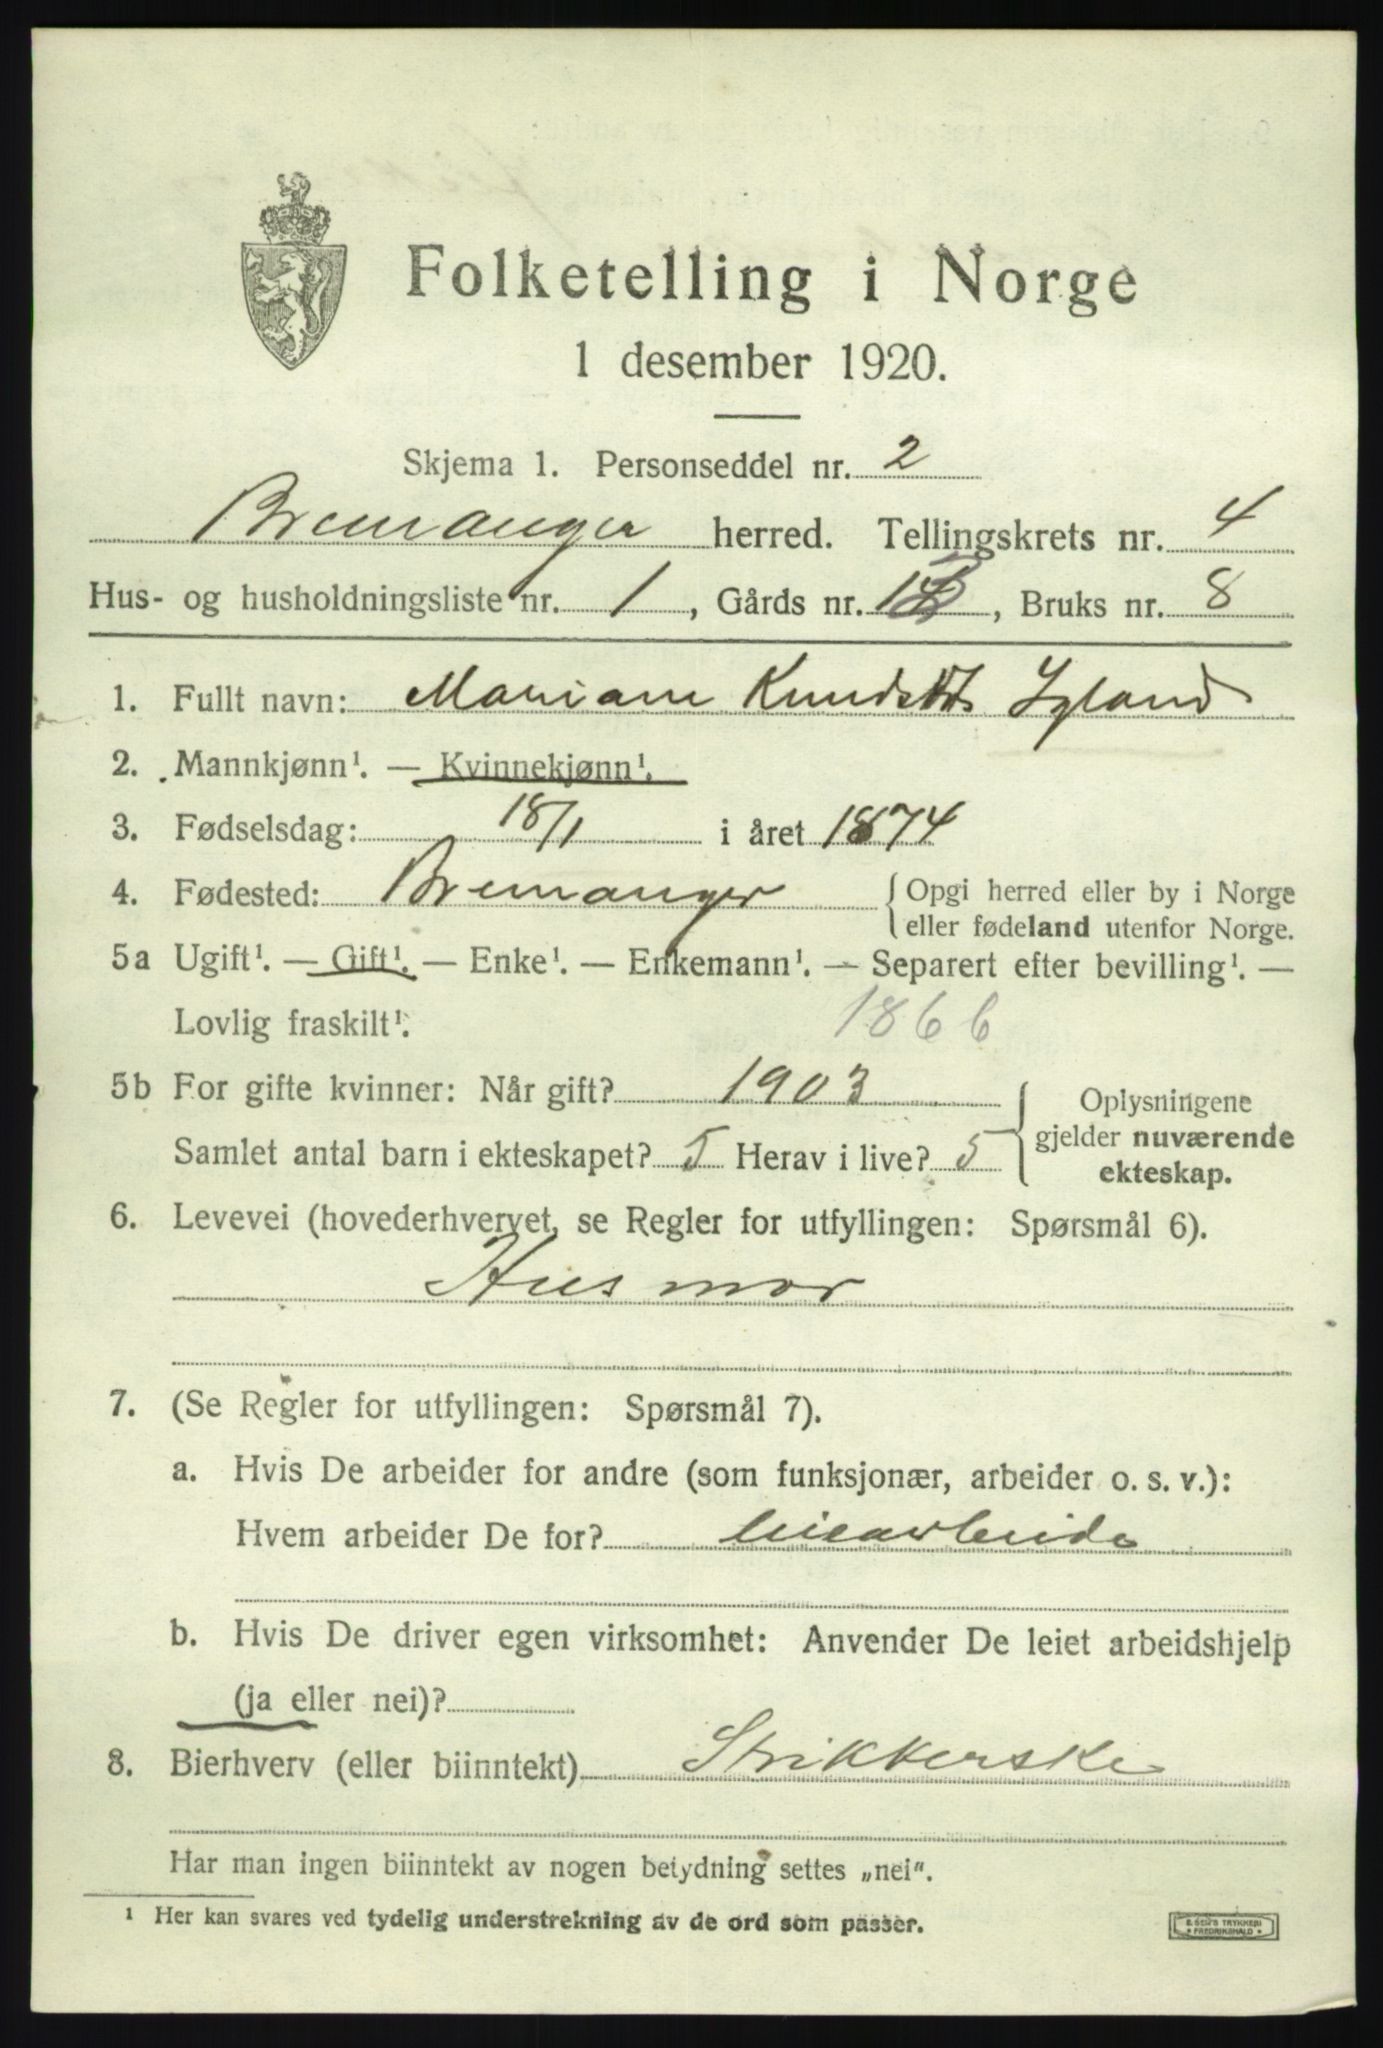 Folketelling i Norge
1 desember 1920.
Skjema 1. Personseddel nr. 2
Bremanger herred. Tellingskrets nr. 4
Hus- og husholdningsliste nr. 1, Gårds nr. , Bruks nr. 8
1. Fullt navn: Mariane Igland
2. Mannkjønn¹. — Kvinnekjønn¹.
3. Fødselsdag: 18/1 i året 1874
4. Fødested: Bremanger { Opgi herred eller by i Norge
eller fødeland utenfor Norge.
5a Ugift¹. — Gift¹. — Enke¹. — Enkemann¹. — Separert efter bevilling¹. —
Lovlig fraskilt¹. 1866
5b For gifte kvinner: Når gift? 1903
Samlet antal barn i ekteskapet? 5 Herav i live? 5
Oplysningene
gjelder nuværende
ekteskap.
6. Levevei (hovederhvervet, se Regler for utfyllingen: Spørsmål 6).
Husmor
7. (Se Regler for utfyllingen: Spørsmål 7).
a. Hvis De arbeider for andre (som funksjonær, arbeider o. s. v.):
Hvem arbeider De for?
b. Hvis De driver egen virksomhet: Anvender De leiet arbeidshjelp
(ja eller nei)?
8. Bierhverv (eller biinntekt) Strikkerske
Har man ingen biinntekt av nogen betydning settes „nei“.
¹ Her kan svares ved tydelig understrekning av de ord som passer.
E. SEM'S TRYKKERI
• FREDRIKSHALD •